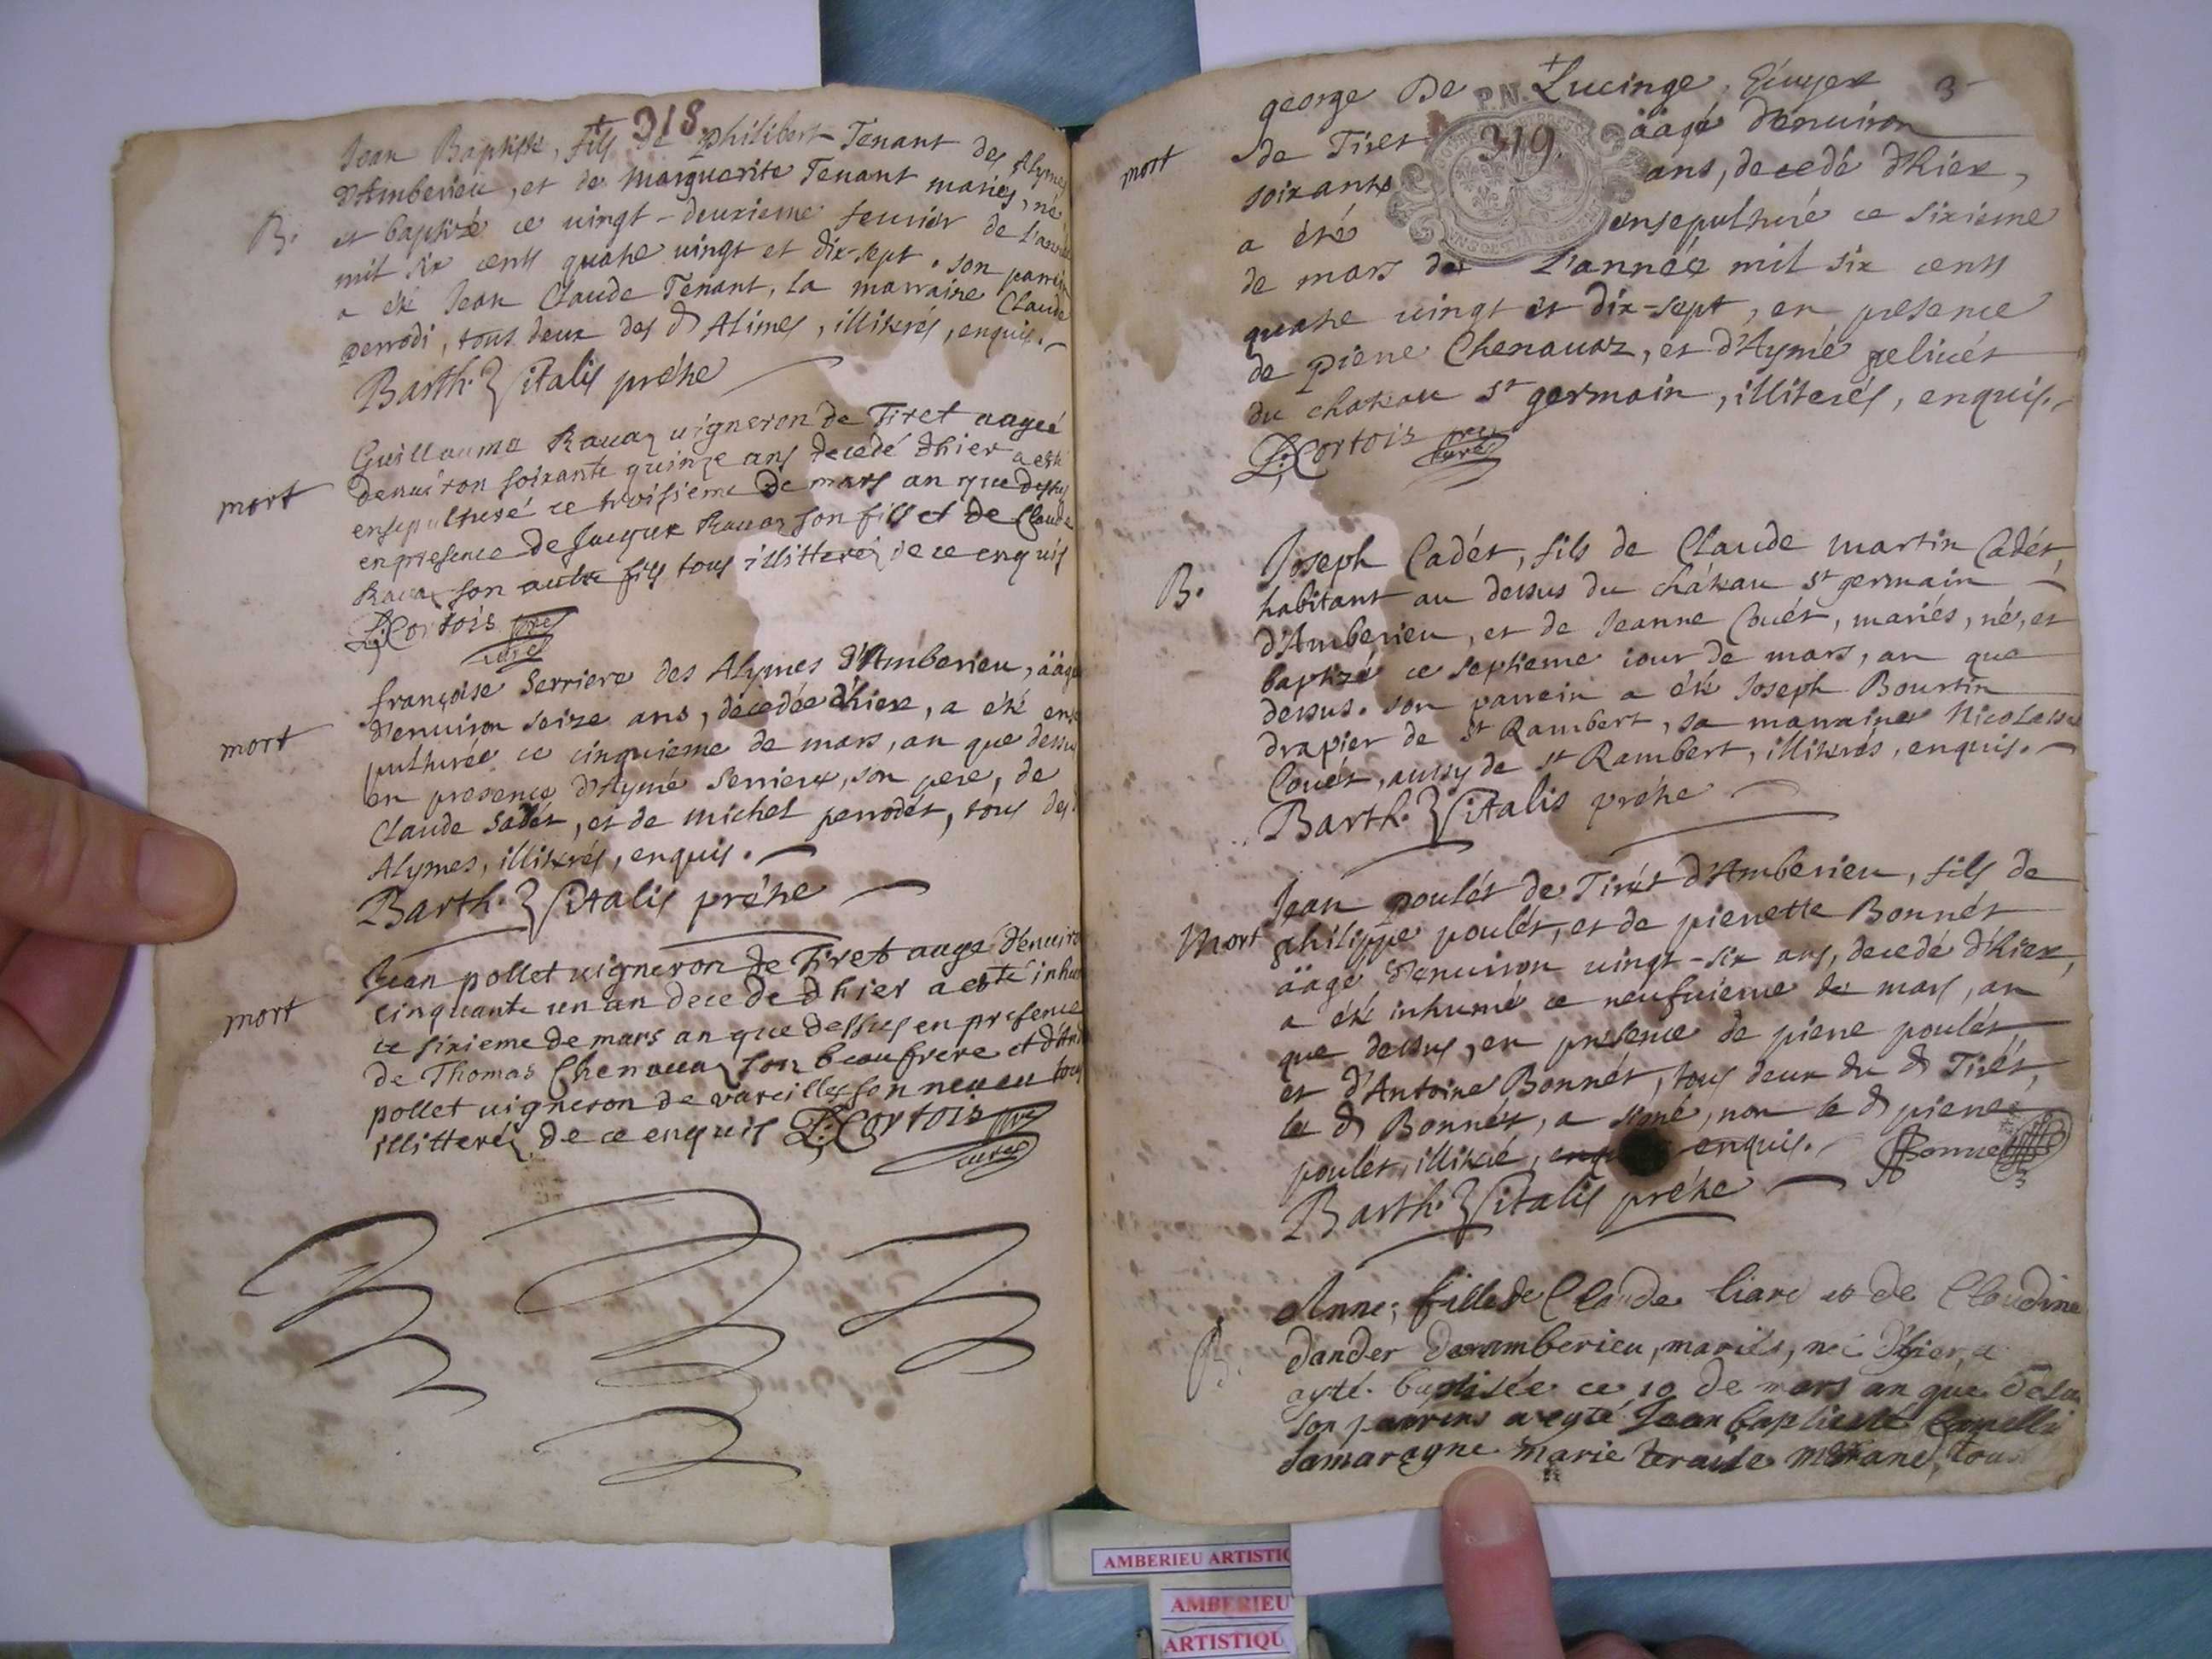 318
Jean Baptiste, fils de philibert Tenant des Alymes
d'Amberieu, et de Marguerite Tenant mariés, né
B. et baptizé ce vingt-deuxieme feurier de L'année
mil six cents quatre vingt et dix-sept. son parrein
a été Jean Claude Tenant, la marraine Claude
perrodi, tous deux des d Alimes, illiterés, enquis.
Barth. Vitalis prétre
Guillaume Rauaz uigneron de Tiret aagé
mort denuiron soixante quinze ans decedé dhier a esté
ensepulturé ce troisieme de mars an que dessus
en presence de Jacque Rauaz son fils et de Claude
Rauaz son autre fils tous illitteréz de ce enquis
L. Cortois pre curé
françoise Serriere des Alymes d'Amberieu, äägée
mort d'enuiron seize ans, décedée d'hier, a été ense
pulturée ce cinquieme de mars, an que dessus
en presence d'Aymé Serriere, son pere, de
Claude Sadét, et de michel perrodét, tous des
Alymes, illiterés, enquis.
Barth. Vitalis prétre
Jean pollet uigneron de Tiret aage d'enuiron
mort cinquante un an decede dhier a esté inhu
ce sixieme de mars an que dessus en presence
de Thomas Chenauaz son beaufrere et d'
pollet uigneron de vareilles son neueu tous
illitteréz de ce enquis L. Cortois pre
curé
george De Lucinge, Ecuyer 3
mort de Tiret 319. äagé d'enuiron
soixante ans, decedé d'hier,
a été ensepulturé ce sixieme
de mars de L'année mil six cents
quatre vingt et dix-sept, en presence
de pierre Chenauaz, et d'Aymé peliuét
du chateau st germain, illiterés, enquis.
L. Cortois pre curé
Joseph Cadét, fils de Claude Martin Cadét,
B. habitant au dessus du château st germain
d'Amberieu, et de Jeanne Couét, mariés, né, et
baptizé ce septieme iour de mars, an que
dessus. son parrein a été Joseph Bourtin
drapier de st Rambert, sa marraine Nicolasse
Couét, aussy de st Rambert, illiterés, enquis.
Barth. Vitalis prétre
Jean poulét de Tirét d'Amberieu, fils de
Mort philippe poulét, et de pierrette Bonnét
äagé d'enuiron vingt-six ans, decedé d'hier,
a été inhumé ce neufuieme de mars, an
que dessus, en presence de pierre poulét
et d'Antoine Bonnét, tous deux du d Tirét,
le d Bonnét, a signé, non le d pierre
poulét, illiteré, enquis. Bonnet
Barth. Vitalis prétre
Anne, fille de Claude liard et de Claudine
B. dander daramberieu, mariés, né d'hier, a
ayté baptisée ce 10 de mars an que desu
son parrins a eyté Jean baptiste
samaragne marie teraise morand, tous
AMBERIEU ARTISTIQ
AMBERIEU
ARTISTIQU